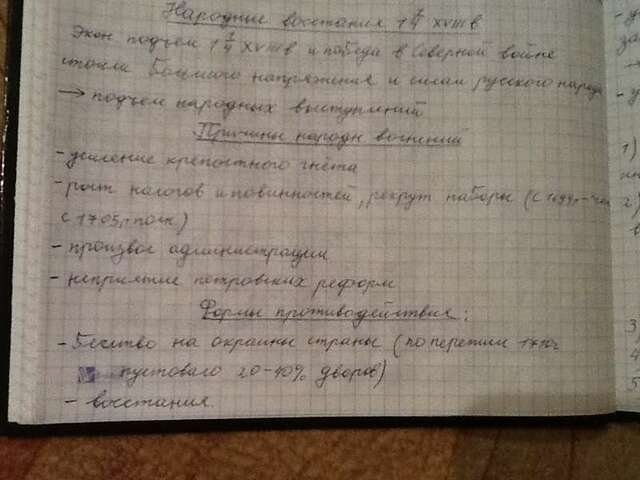 Народные восстания 1 1/4 XVIII в
Экон подъем 1 1/4 XVIII в и победа в Северной войне
стоила большого напряжения и силам русского народа
→ подъем народных выступлений
Причины народн волнений
- усиление крепостного гнёта
- рост налогов и повинностей, рекрут наборы (с 1699г-
с 1705г пост)
- произвол администрации
- неприятие петровских реформ
Формы противодействия:
- Бегство на окраины страны (по переписи 1710г
пустовало 20-40% дворов)
- восстания.
1)
2)
3)
4
5